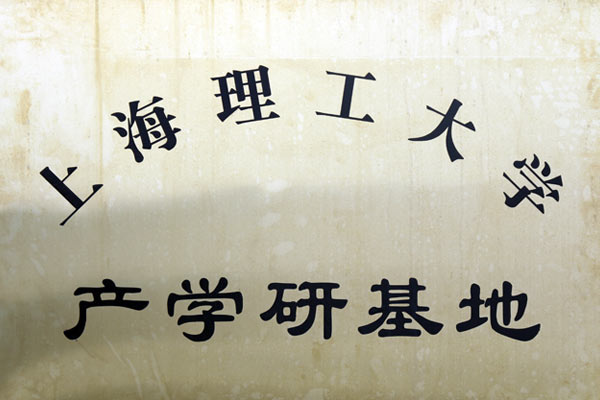 上海理工大学
产学研基地